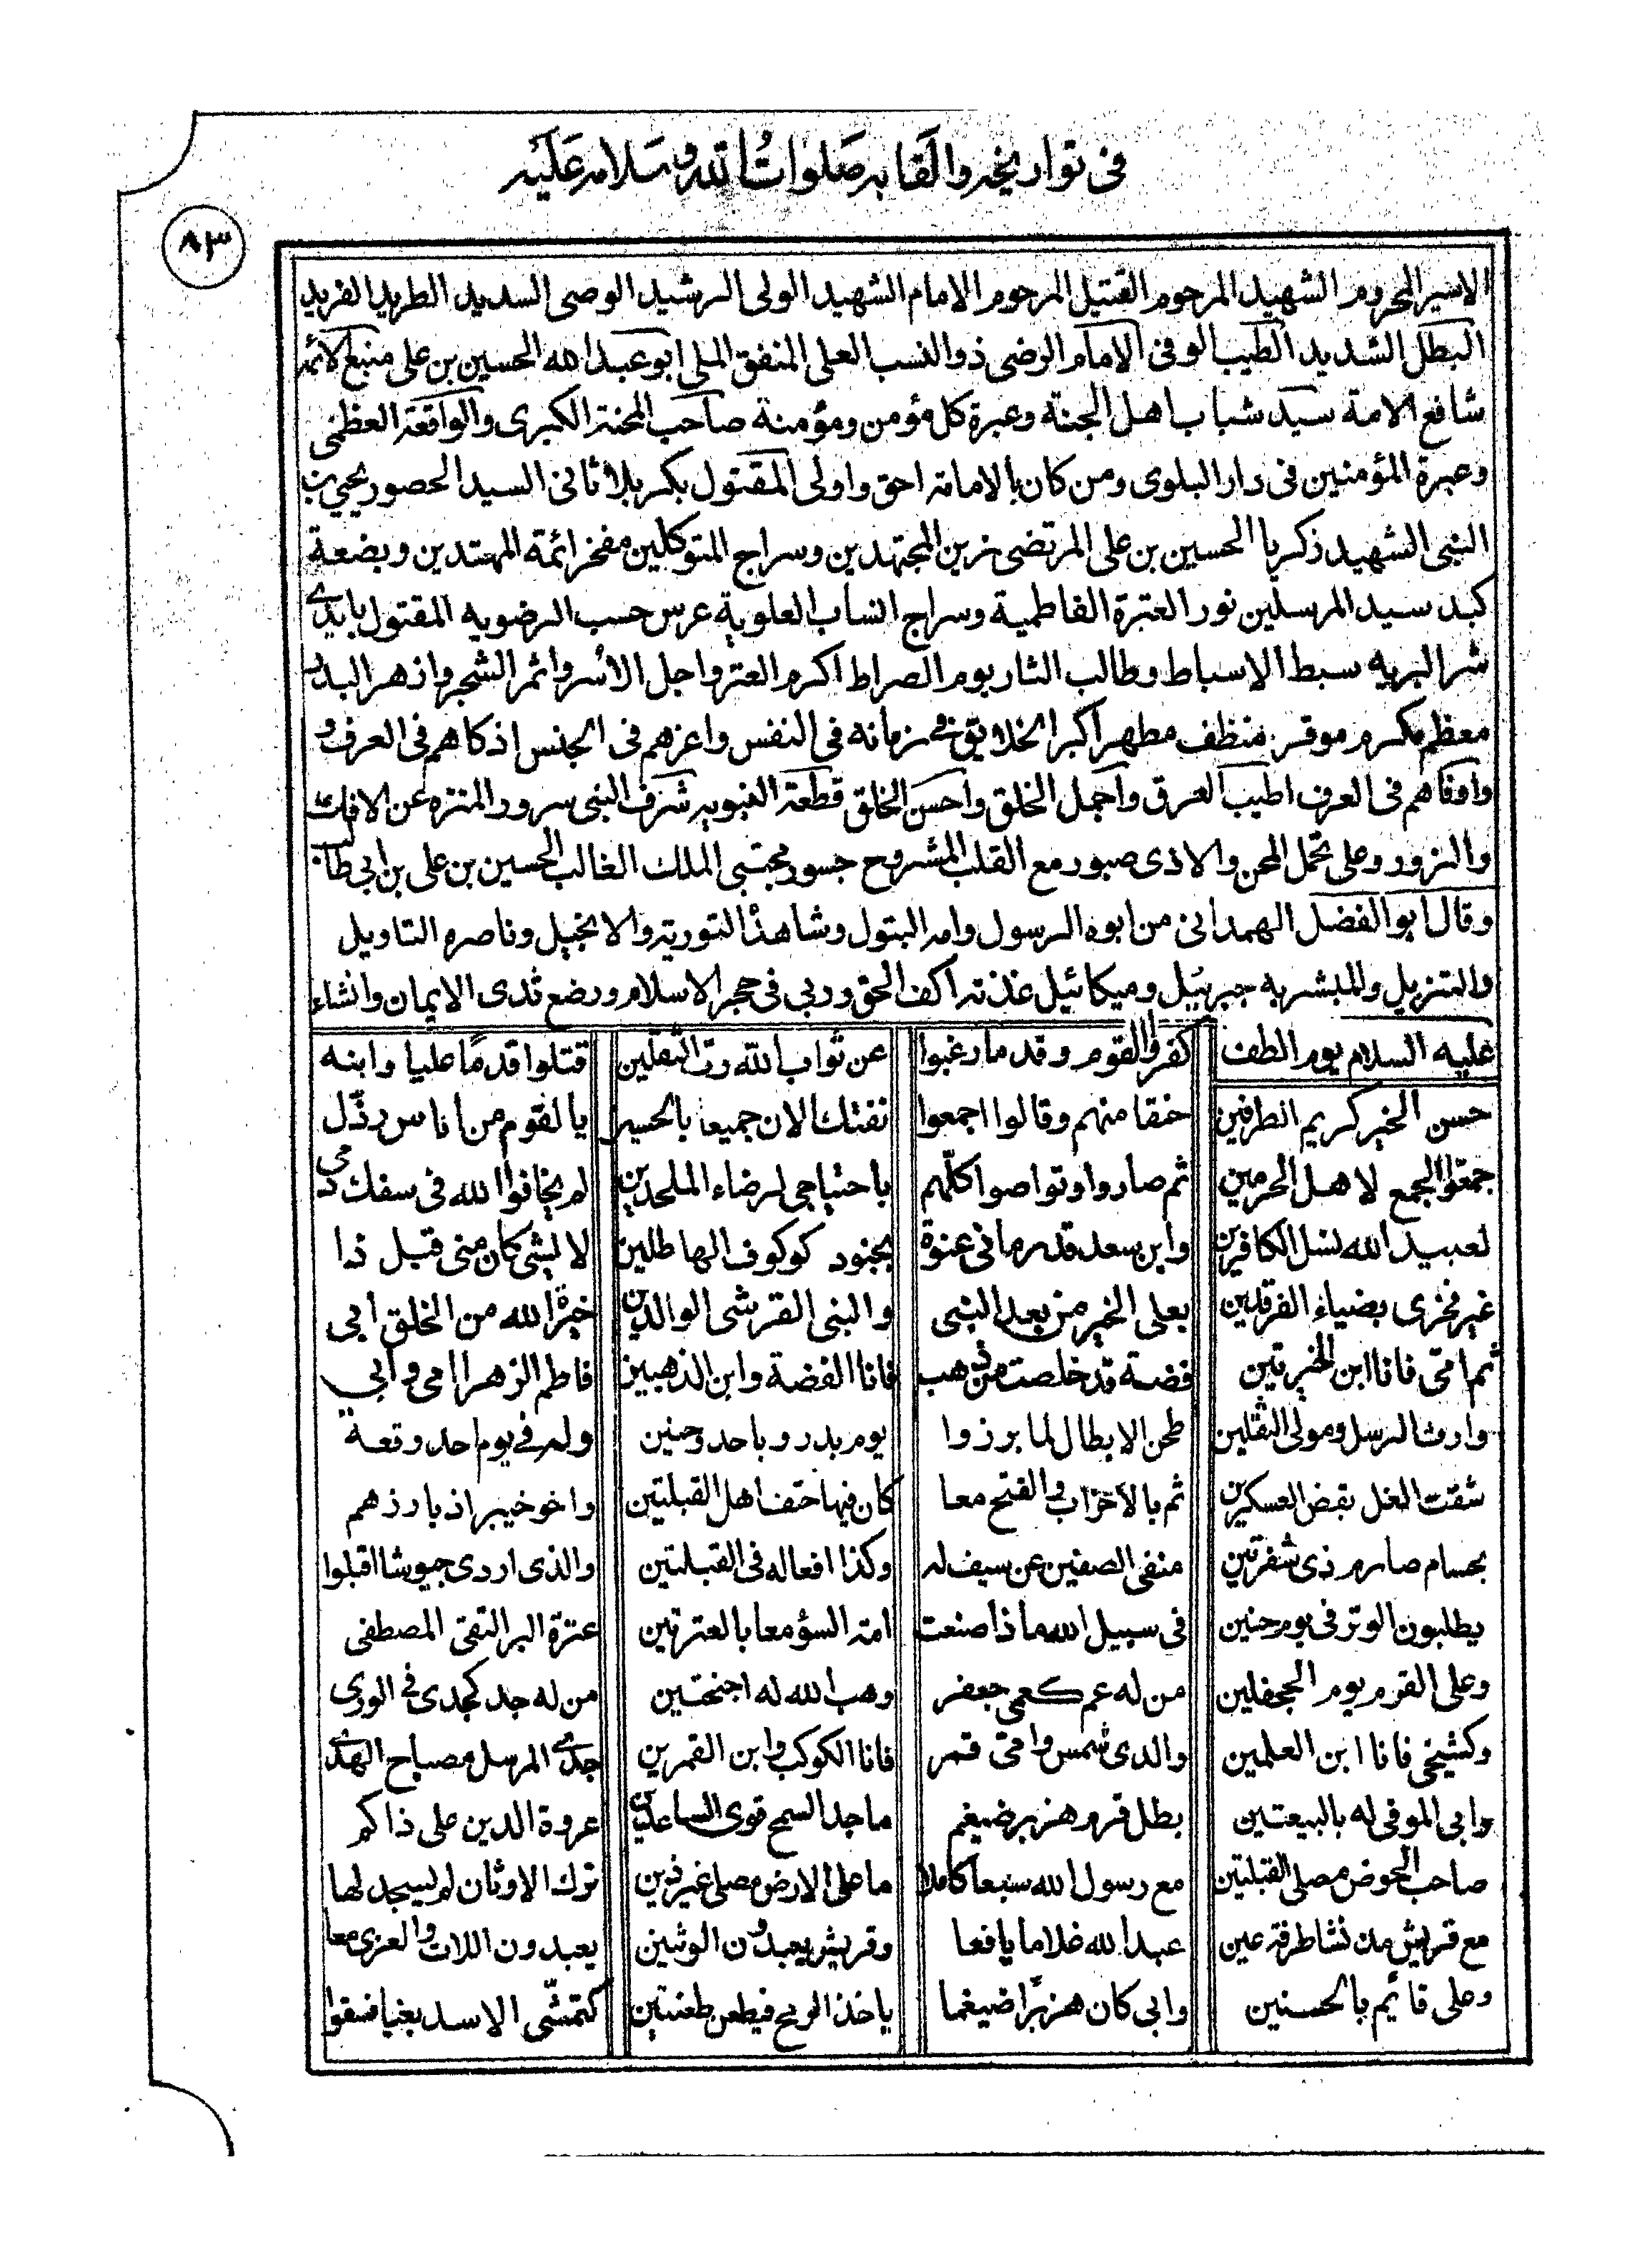 في تواريخه والقابه صلوات الله وسلامه عليه
٨٣
الاسير المحروم الشهيد المرحوم القتيل المرجوم الامام الشهيد الولى الرشيد الوصى السديد الطريد الفريد
البطل الشديد الطيب الوفى الامام الرضى ذو النسب العلى المنفق الملى ابو عبد الله الحسين بن على منبع الائمه
شافع الامة سيد شباب اهل الجنة وعبرة كل مؤمن ومؤمنة صاحب المحنة الكبرى والواقعة العظمى
وعبرة المؤمنين فى دار البلوى ومن كان بالامامة احق واولى المقتول بكربلا ثانى السيد الحصور يحيى بن
النبى الشهيد زكريا الحسين بن على المرتضى زين المجتهدين وسراج المتوكلين مفخر ائمة المهتدين وبضعة
كبد سيد المرسلين نور العترة الفاطمية وسراج انساب العلوية عرس حسب الرضويه المقتول بايدى
شر البريه سبط الاسباط وطالب الثار يوم الصراط اكرم العتر واجل الاسر واثمر الشجر وازهر البدر
معظم مكرم موقر منظف مطهر اكبر الخلايق فى زمانه فى النفس واعزهم فى الجنس اذكاهم فى العرف و
واوفاهم فى العرف اطيب العرق واجمل الخلق واحسن الخلق قطعة النبويه شرف النبى سرور المنزه عن الافك
والزور وعلى تحمل المحن والاذى صبور مع القلب المشروح جسور مجتبى الملك الغالب الحسين بن على بن ابى طالب
وقال ابو الفضل الهمدانى من ابوه الرسول وامه البتول وشاهده التورية والانجيل وناصره التاويل
والتنزيل والمبشر به جبرئيل وميكائيل غذته اكف الحق وربى فى حجر الاسلام ورضع ثدى الايمان وانشاء
عليه السلام يوم الطف كفر القوم وقدما رغبوا عن ثواب الله رب الثقلين قتلوا قدما عليا وابنه
حسن الخير كريم الطرفين حنقا منهم وقالوا اجمعوا نفتك الان جميعا بالحسين يا لقوم من اناس رذل
جمعوا الجمع لاهل الحرمين ثم صاروا وتواصوا كلهم باجتياحى لرضاء الملحدين لم يخافوا الله فى سفك دمى
لعبيد الله نسل الكافرين وابن سعد قد رمانى عنوة بجنود كوكوف الهاطلين لا لشىء كان منى قبل ذا
غير فخرى بضياء الفرقدين بعلى الخير من بعد النبى والنبى القرشى الوالدين خيرة الله من الخلق ابى
ثم امى فانا ابن الخيرتين فضة قد خلصت من ذهب فانا الفضة وابن الذهبين فاطم الزهرا امى وابى
وارث الرسل ومولى الثقلين طحن الابطال لما برزوا يوم بدر وباحد وحنين وله فى يوم احد وقعة
شفت الغل بقض العسكرين ثم بالاحزاب والفتح معا كان فيها حتف اهل القبلتين واخو خيبر اذ بارزهم
بحسام صارم ذى شفرتين منفى الصفين عن سيف له وكذا افعاله فى القبلتين والذى اردى جيوشا اقبلوا
يطلبون الوتر فى يوم حنين فى سبيل الله ماذا صنعت امة السؤ معا بالعترتين عترة البر التقى المصطفى
وعلى القرم يوم الجحفلين من له عم كعمى جعفر وهب الله له اجنحتين من له جد كجدى فى الورى
وكشيخى فانا ابن العلمين والدى شمس وامى قمر فانا الكوكب وابن القمرين جدى المرسل مصباح الهدى
وابى الموفى له بالبيعتين بطل قرم هزبر ضيغم ماجد السمح قوى الساعدين عروة الدين على ذاكم
صاحب الحوض مصلى القبلتين مع رسول الله سبعا كاملا ما على الارض مصلى غير ذين ترك الاوثان لم يسجد لها
مع قريش مذ نشا طرفة عين عبد الله غلاما يافعا وقريش يعبدون الوثنين يعبدون اللات والعزى معا
وعلى قائم بالحسنين وابى كان هزبرا ضيغما ياخذ الرمح فيطعن طعنتين كتمشى الاسد بغيا فسقوا